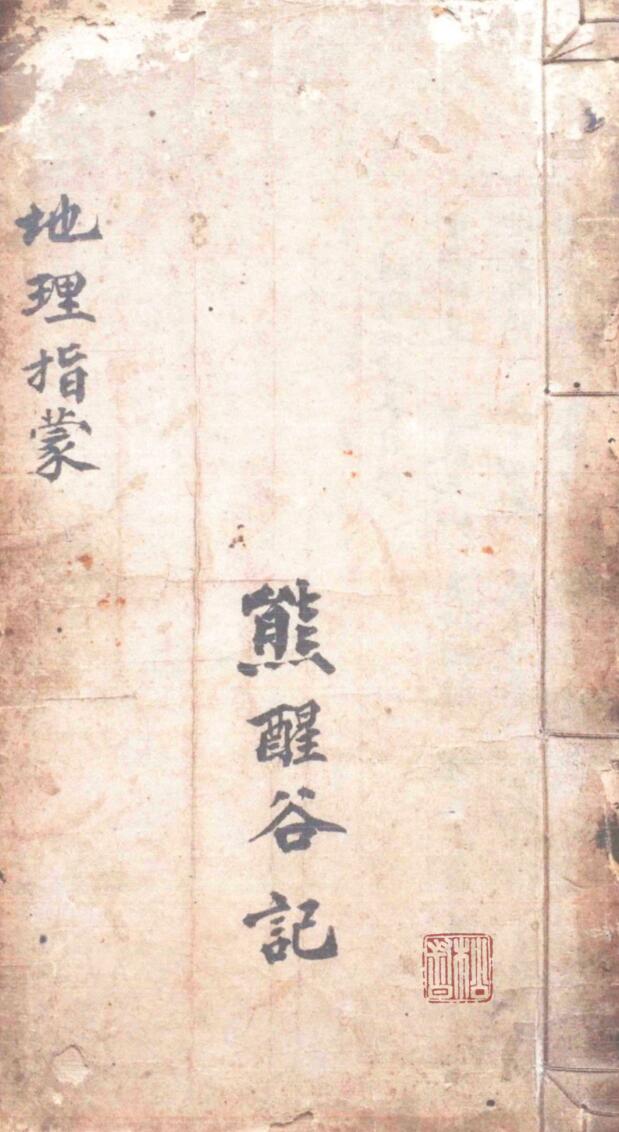 熊醒谷記
地理指蒙